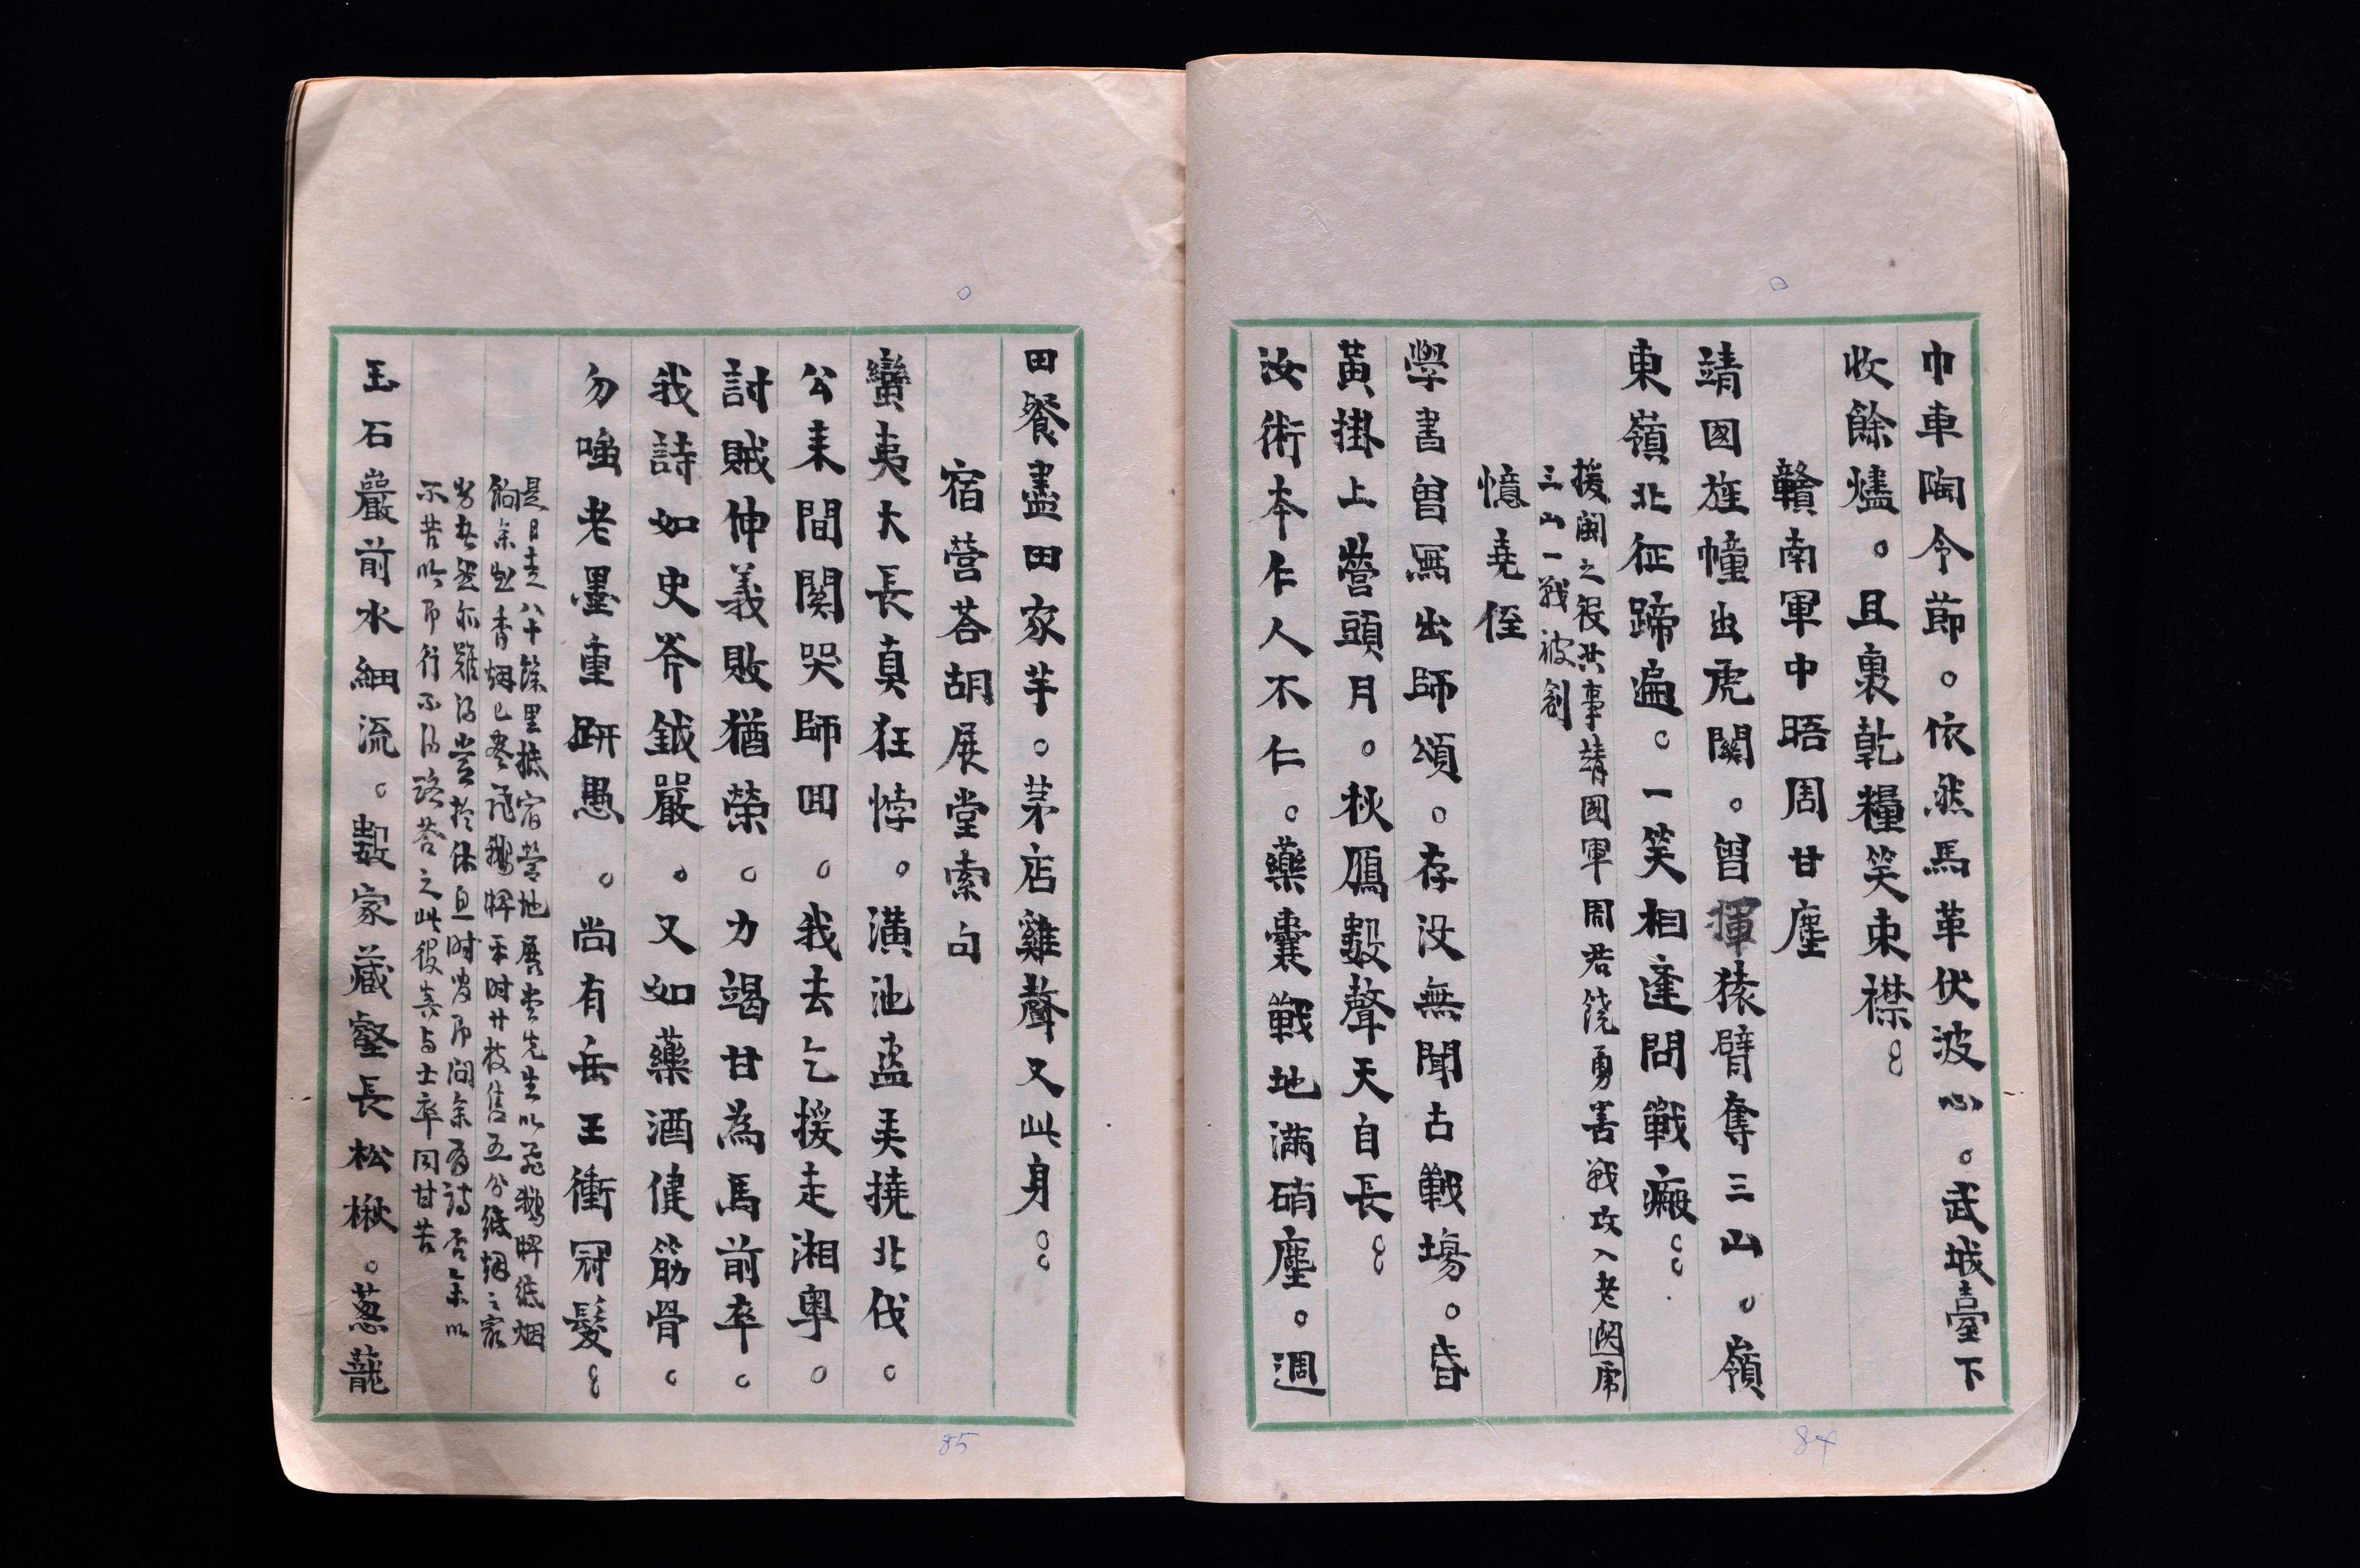 巾車陶令節。依然馬革伏波心。武城臺下
收餘燼。且裹乾糧笑束襟。。
贛南軍中晤周甘塵
靖國旌幢出虎關。曾揮猿臂奪三山。嶺
東嶺北征蹄遍。一笑相逢問戰瘢。。
援閩之役共事靖國軍周君饒勇善戰攻入老關席
三山一戰被創
憶堯侄
學書曾寫出師頌。存沒無聞古戰場。昏
黃掛上營頭月。秋鴈數聲天自長。。
汝術本仁人不仁。藥囊戰地滿硝塵。週
84
田餐盡田家芋。茅店雞聲又此身。。
宿營荅胡展堂索句
蠻夷大長真狂悖。潢池盜弄撓北伐。
公來間關哭師回。我去乞援走湘粵。
討賊仲義敗猶榮。力竭甘為馬前卒。
我詩如史斧鉞嚴。又如藥酒健筋骨。
勿嗤老墨重趼愚。尚有岳王衝冠髮。。
是日走八十餘里抵宿營地展堂先生以飛鵝牌紙烟
餉余也香烟已罄飛鵝牌平時廿枝售五分紙烟之
勞者無亦難得當於休息時必即問余有詩否余以
不苦吟即行不得路荅之此役真与士卒同甘苦
玉石巖前水細流。數家藏壑長松楸。蔥蘢
85